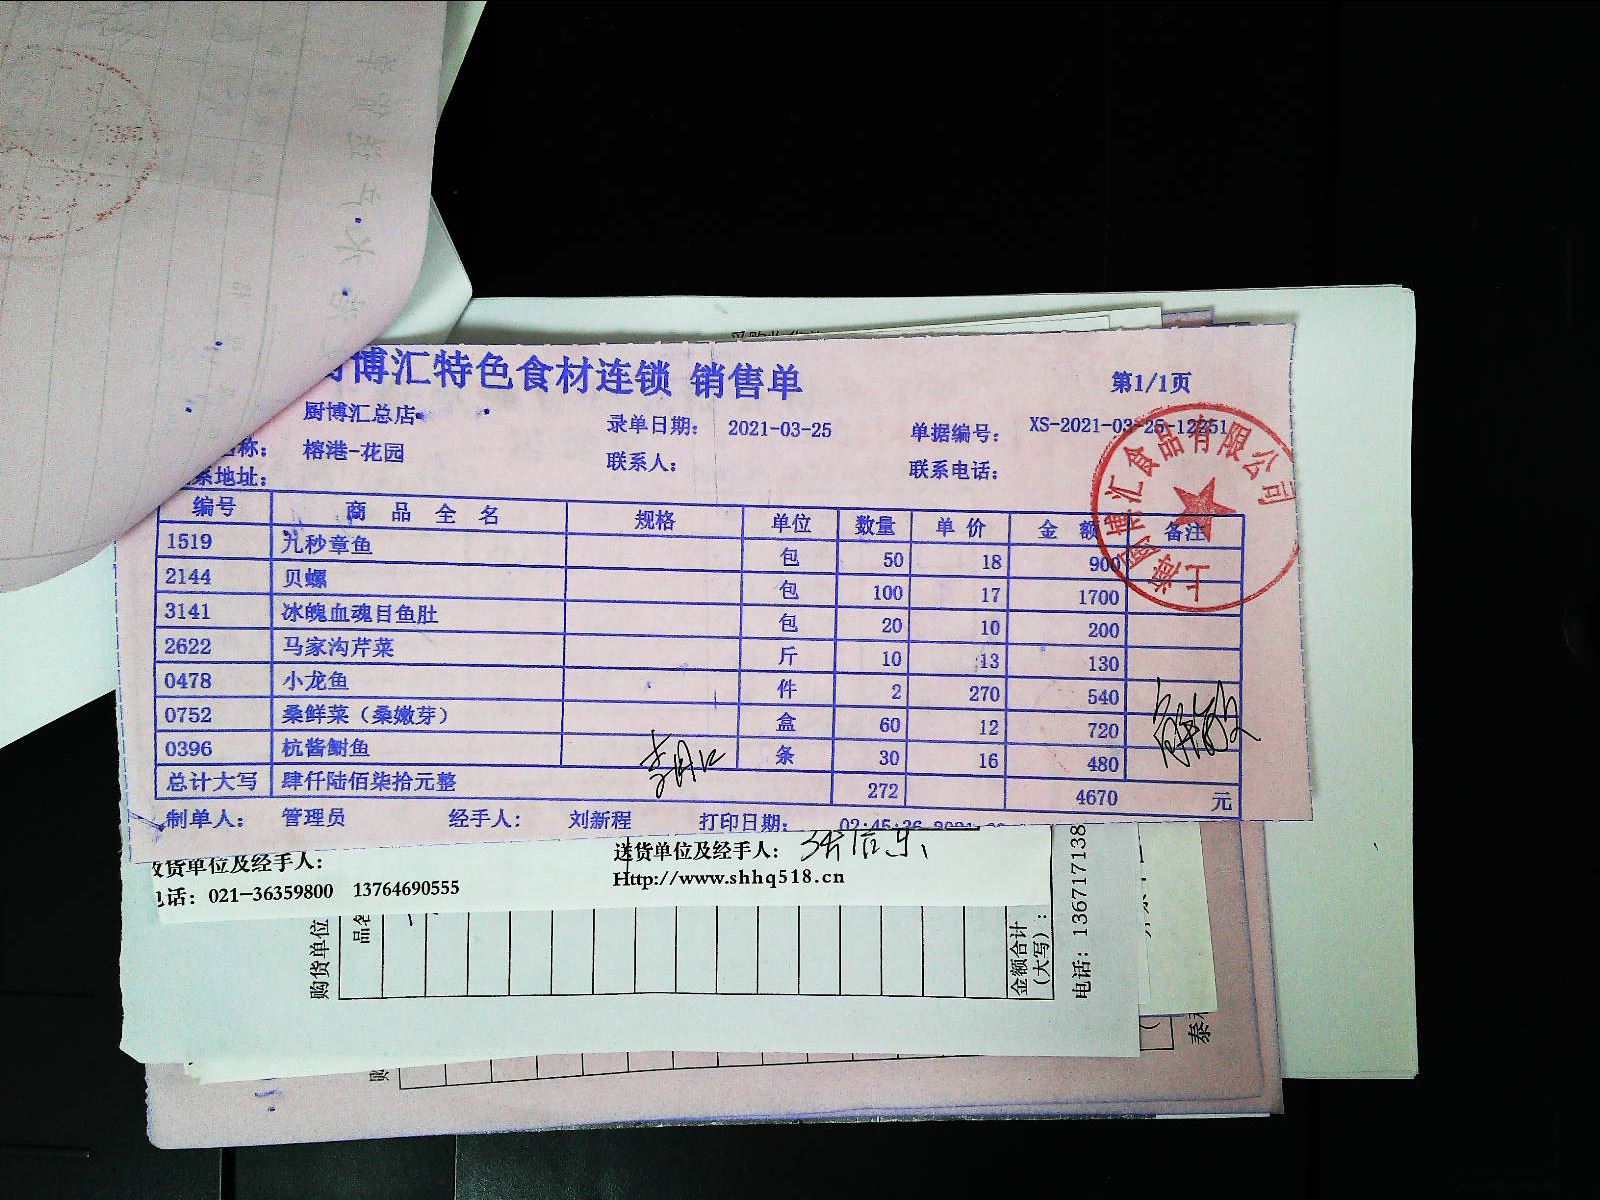 博汇特色食材连锁 销售单
第1/1页
厨博汇总店
录单日期: 2021-03-25
单据编号: XS-2021-03-25-12251
称: 榕港-花园
联系人:
联系电话:
系地址:
编号 商品全名 规格 单位 数量 单价 金额 备注
1519 九秒章鱼 包 50 18 900
2144 贝螺 包 100 17 1700
3141 冰魄血魂目鱼肚 包 20 10 200
2622 马家沟芹菜 斤 10 13 130
0478 小龙鱼 件 2 270 540
0752 桑鲜菜（桑嫩芽） 盒 60 12 720
0396 杭酱鲥鱼 条 30 16 480
总计大写 肆仟陆佰柒拾元整 272 4670 元
制单人: 管理员 经手人: 刘新程 打印日期:
上海厨博汇食品有限公司
收货单位及经手人:
送货单位及经手人:
电话: 021-36359800 13764690555
Http://www.shhq518.cn
购货单位
品名
金额合计
(大写):
电话: 1367177138
购
泰